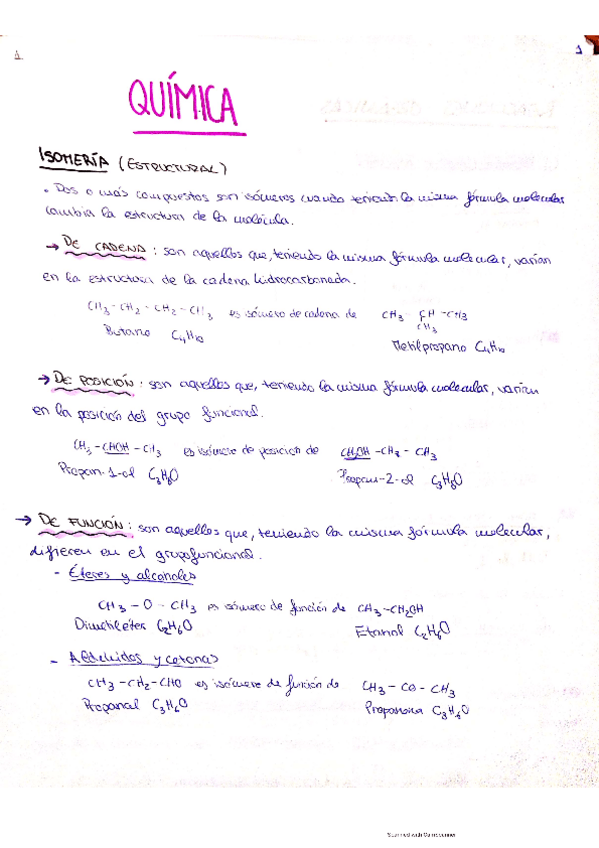 1 1
QUÍMICA
ISOMERÍA (ESTRUCTURAL)
• Dos o más compuestos son isómeros cuando teniendo la misma fórmula molecular
cambia la estructura de la molécula.
→ DE CADENA: son aquellos que, teniendo la misma fórmula molecular, varían
en la estructura de la cadena hidrocarbonada.
CH3 - CH2 - CH2 - CH3 es isómero de cadena de CH3 - CH - CH3
CH3
Butano C4H10
Metilpropano C4H10
→ DE POSICIÓN: son aquellos que, teniendo la misma fórmula molecular, varían
en la posición del grupo funcional.
CH3 - CHOH - CH3 es isómero de posición de CH2OH - CH2 - CH3
Propan-1-ol C3H8O Propan-2-ol C3H8O
→ DE FUNCIÓN: son aquellos que, teniendo la misma fórmula molecular,
difieren en el grupo funcional.
- Éteres y alcoholes
CH3 - O - CH3 es isómero de función de CH3 - CH2OH
Dimetiléter C2H6O Etanol C2H6O
- Aldehídos y cetonas
CH3 - CH2 - CHO es isómero de función de CH3 - CO - CH3
Propanal C3H6O Propanona C3H6O
Scanned with CamScanner